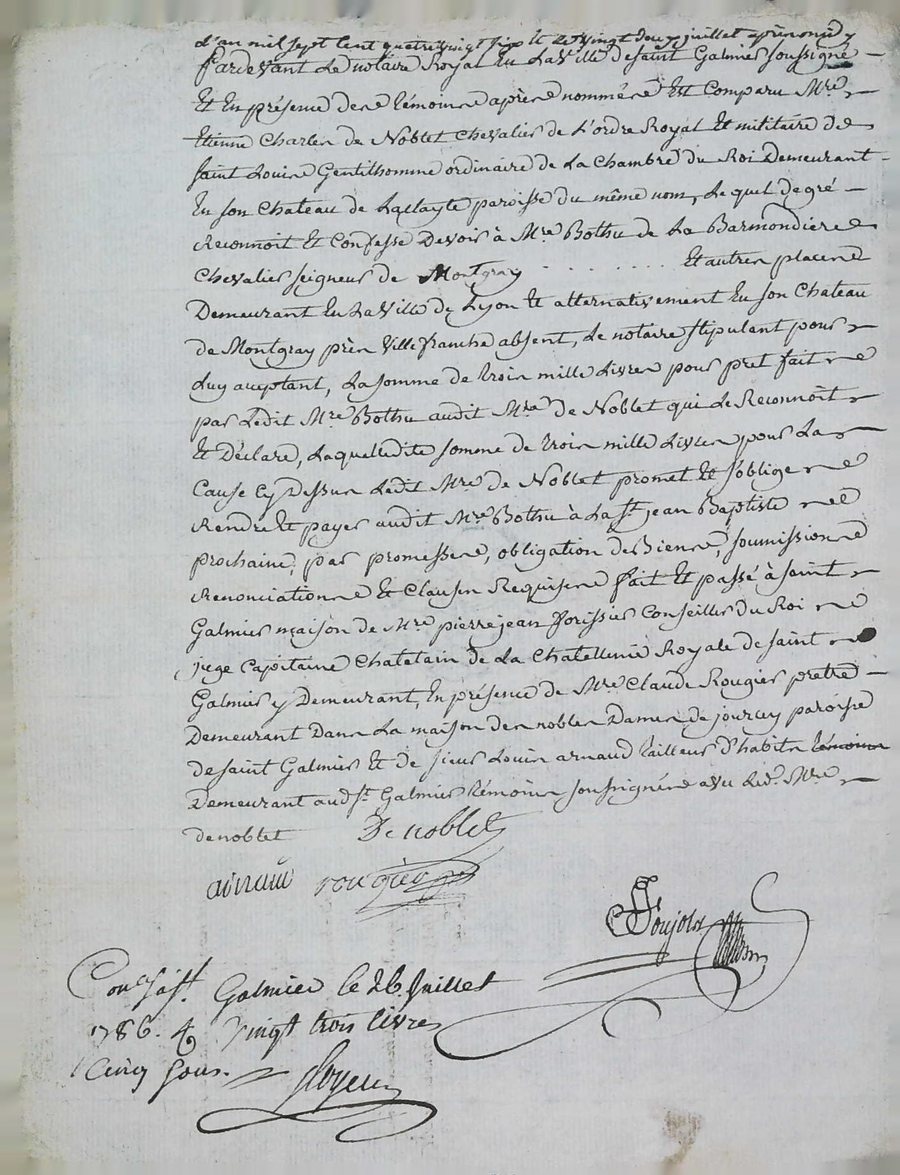 L'an mil sept cent quatrevingt six le vingt deux juillet après midy
Pardevant Le notaire Royal En La Ville de Saint Galmier soussigné
Et En présence des témoins après nommés Est Comparu Mre
Etienne Charles de Noblet Chevalier de L'ordre Royal Et militaire de
Saint Louis Gentilhomme ordinaire de La Chambre du Roi Demeurant
En son Chateau de paroisse du même nom, Lequel de gré
Reconnoit Et Confesse Devoir à Mre Bothu de La Barmondiere
Chevalier Seigneur de Montgray . . . . . . . . Et autres places
Demeurant En La Ville de Lyon Et alternativement En son Chateau
de Montgray près Ville franche absent, Le notaire stipulant pour
Luy acceptant, La somme de trois mille Livres pour pret fait
par Ledit Mre Bothu audit Mre de Noblet qui Le Reconnoit
Et Déclare, Laquelledite somme de trois mille Livres pour La
Cause Cy Dessus Ledit Mre de Noblet promet Et s'oblige
Rendre Et payer audit Mre Bothu à La St jean Baptiste
prochaine, par promesses, obligation de Biens, soumissions
Renonciations Et Clauses Requises fait Et passé à saint
Galmier maison de Mre pierre jean forissier Conseiller du Roi
juge Capitaine Chatelain de La Chatellenie Royale de saint
Galmier y Demeurant, En présence de Mre Claude Rougier pretre
Demeurant Dans La maison des nobles Dames de jourcey paroisse
de saint Galmier Et de sieur Louis arnaud tailleur d'habits témoins
Demeurant aud. St Galmier témoins soussignés avec Led. Mre
de noblet De noblet
arnaud rougier
Poujols
Con. à St. Galmier le 26 Juillet
1786. vingt trois livres
Cinq sous.